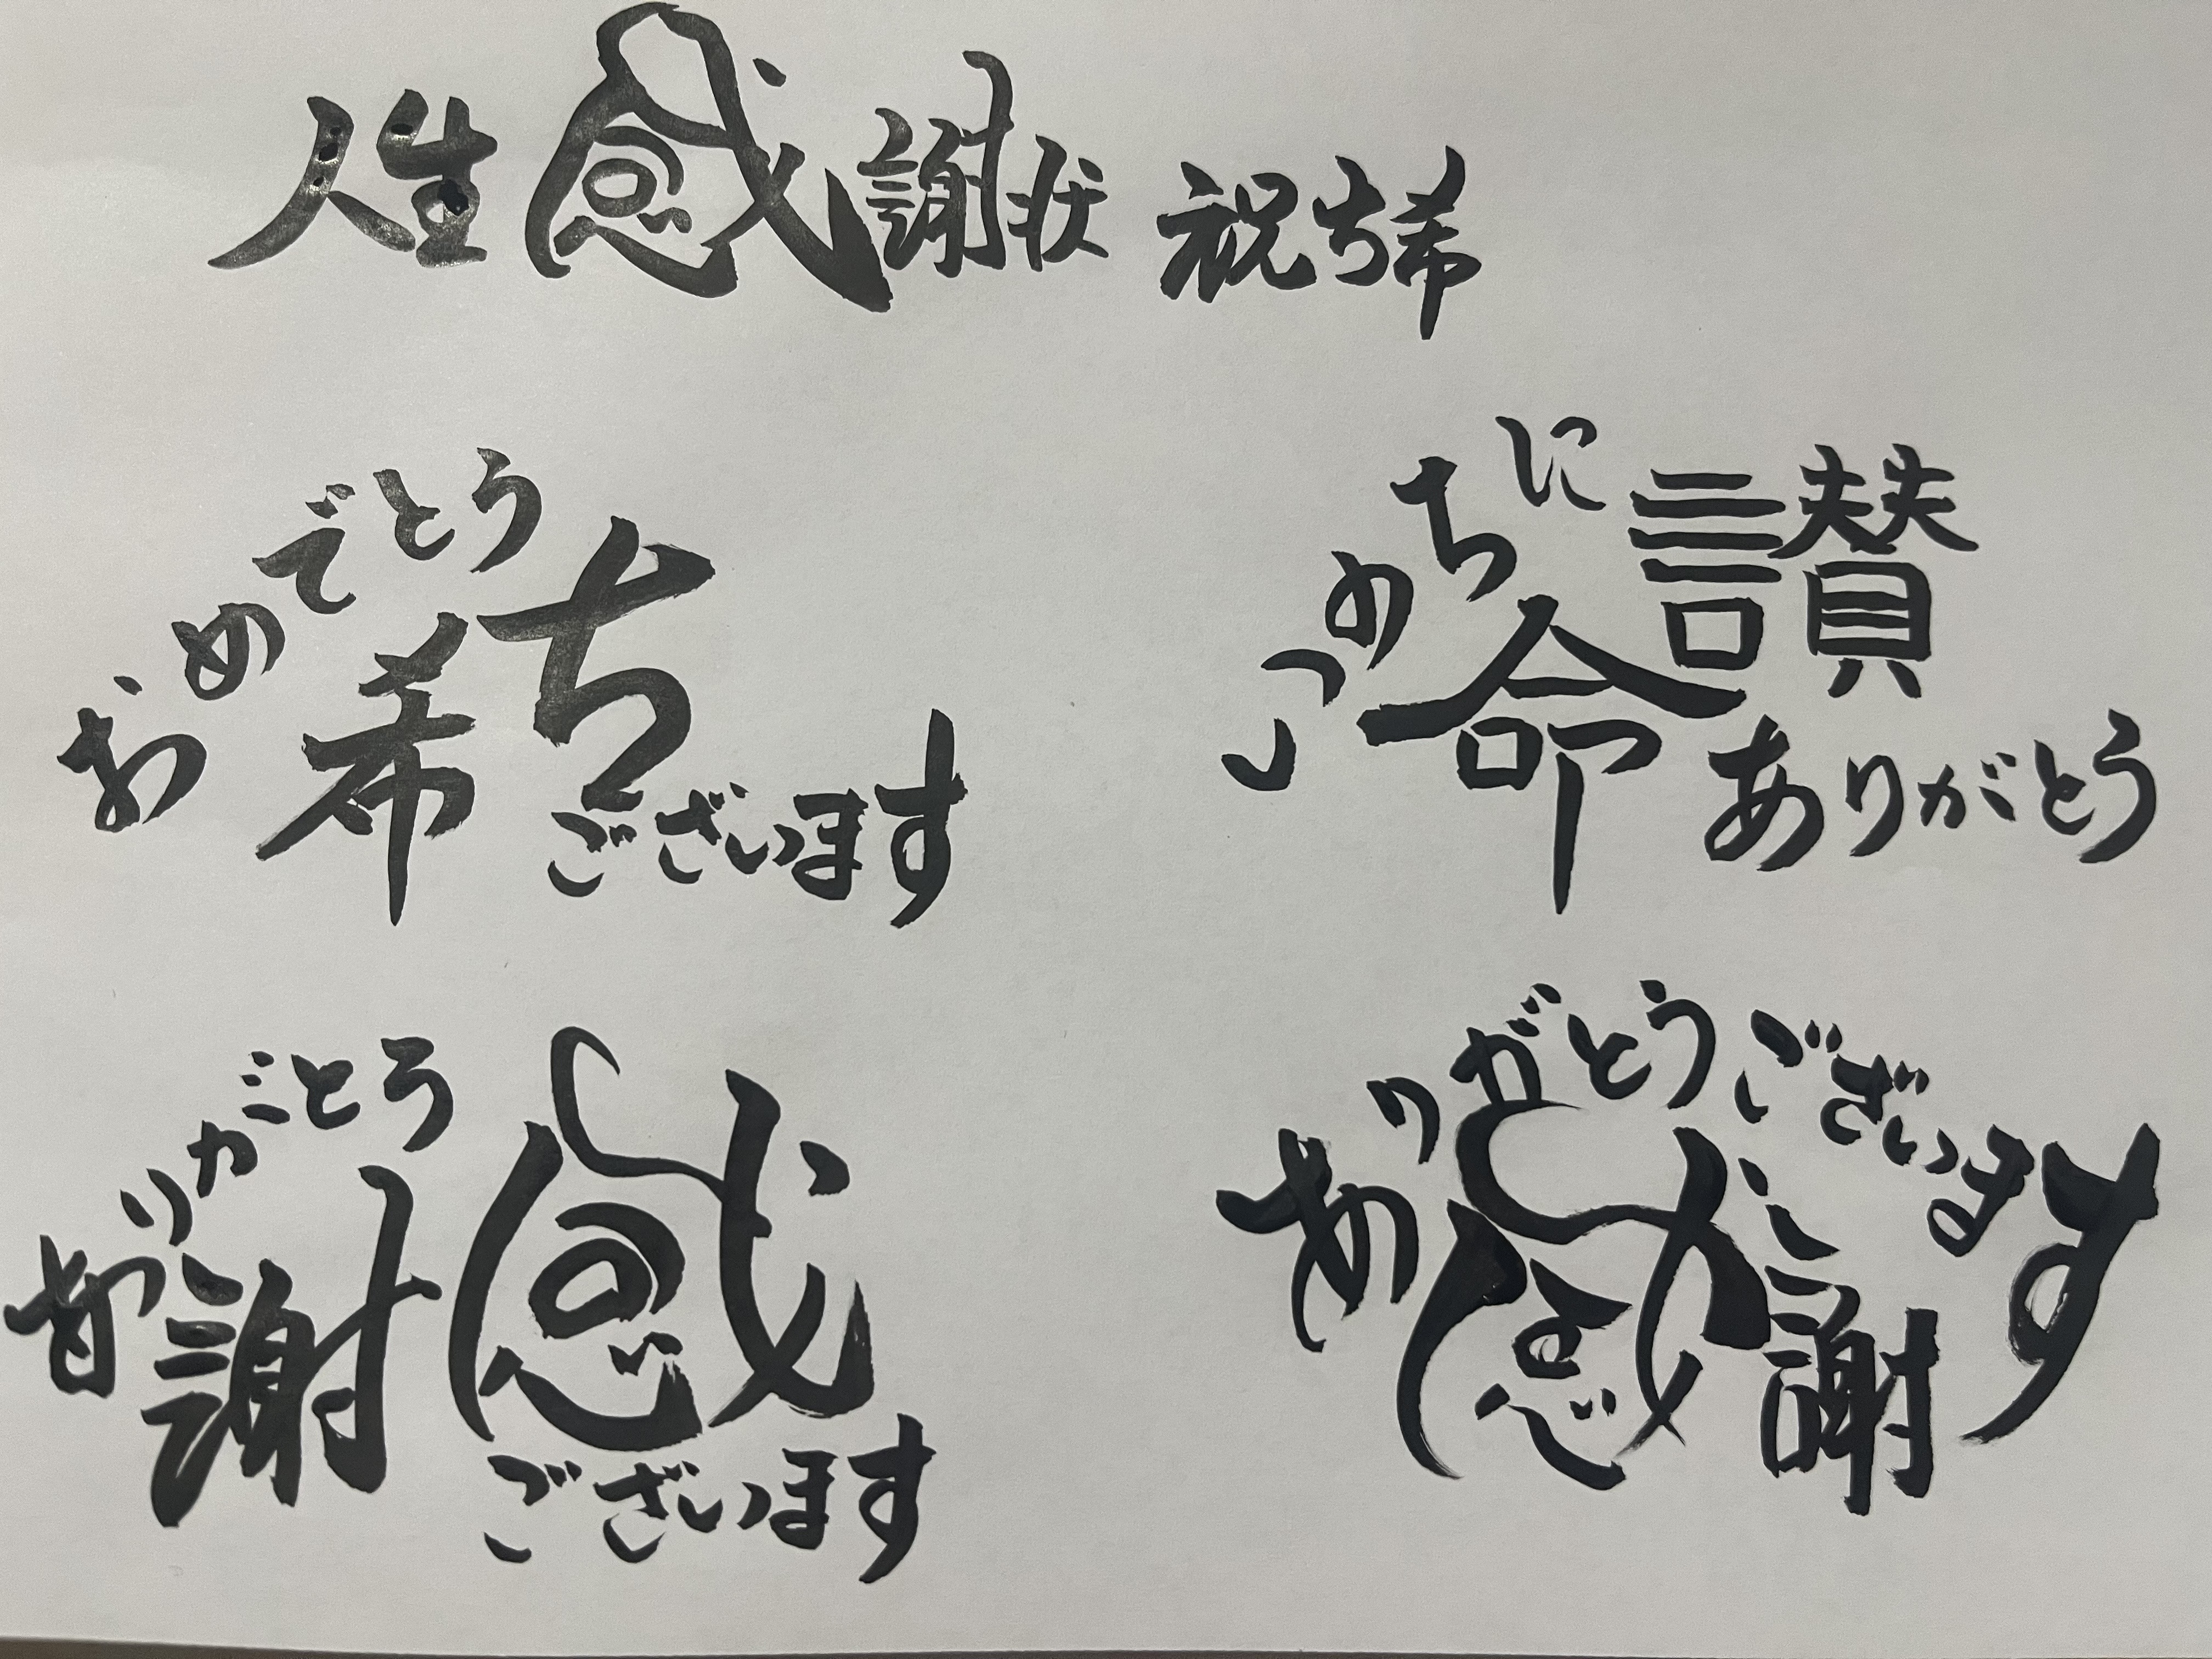 人生感謝状 祝ち希
おめでとう
希ち
ございます
いのちに
命讃
ありがとう
ありがとう
謝感
ございます
ありがとうございます
感謝